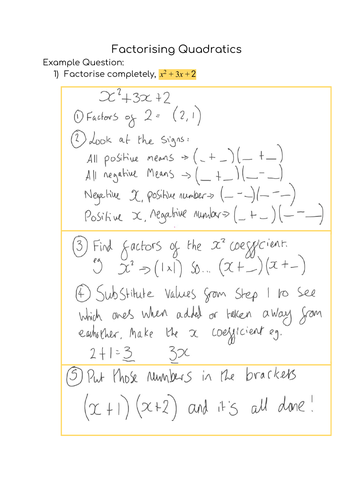 Factorising Quadratics
Example Question:
1) Factorise completely, x² + 3x + 2
x²+3x+2
① Factors of 2 = (2,1)
② Look at the signs:
All positive means → (_ + _)(_ + _)
All negative Means → (_ + _)(_ - _)
Negative x, positive number → (_ - _)(_ - _)
Positive x, negative number → (_ + _)(_ - _)
③ Find factors of the x² coefficient.
eg x² → (1x1) so... (x + _)(x + _)
④ Substitute values from Step 1 to see
which ones when added or taken away from
eachother, make the x coefficient eg.
2+1=3 3x
⑤ Put those numbers in the brackets
(x+1)(x+2) and it's all done!